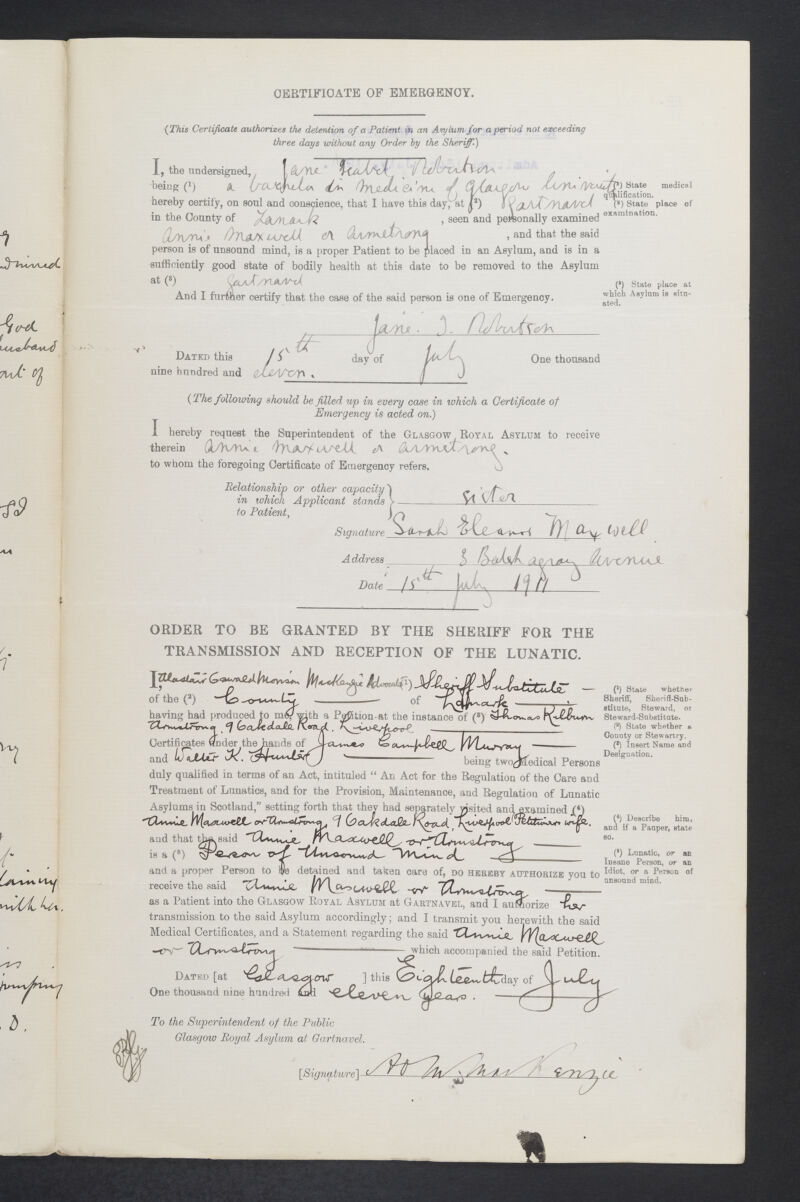 CERTIFICATE OF EMERGENCY.
(This Certificate authorizes the detention of a Patient in an Asylum for a period not exceeding
three days without any Order by the Sheriff.)
I, the undersigned, Jane Isabel Robertson
being (¹) a bachelor in medicine of Glasgow University
hereby certify, on soul and conscience, that I have this day, at (²) Gartnavel
in the County of Lanark , seen and personally examined
Annie Maxwell or Armstrong , and that the said
person is of unsound mind, is a proper Patient to be placed in an Asylum, and is in a
sufficiently good state of bodily health at this date to be removed to the Asylum
at (³) Gartnavel
And I further certify that the case of the said person is one of Emergency.
(¹) State medical
qualification.
(²) State place of
examination.
(³) State place at
which Asylum is situ-
ated.
Jane. I. Robertson
DATED this 15th day of July One thousand
nine hundred and eleven.
(The following should be filled up in every case in which a Certificate of
Emergency is acted on.)
I hereby request the Superintendent of the GLASGOW ROYAL ASYLUM to receive
therein Annie Maxwell or Armstrong.
to whom the foregoing Certificate of Emergency refers.
Relationship or other capacity
in which Applicant stands
to Patient,
sister
Signature Sarah Eleanor Maxwell
Address 3 Balshagray Avenue
Date 15th July 1911
ORDER TO BE GRANTED BY THE SHERIFF FOR THE
TRANSMISSION AND RECEPTION OF THE LUNATIC.
I, Alastair Oswald Morison MacKenzie Advocate (¹) Sheriff Substitute
of the (²) County of Lanark
having had produced to me, with a Petition at the instance of (³) Thomas Kilburn
Armstrong, 9 Oakdale Road, Liverpool
Certificates under the hands of James Campbell Murray
and Walter K. Hunter being two Medical Persons
duly qualified in terms of an Act, intituled "An Act for the Regulation of the Care and
Treatment of Lunatics, and for the Provision, Maintenance, and Regulation of Lunatic
Asylums in Scotland," setting forth that they had separately visited and examined (⁴)
Annie Maxwell or Armstrong, 9 Oakdale Road, Liverpool Petitioner's wife.
and that the said Annie Maxwell or Armstrong
is a (⁵) Person of Unsound Mind
and a proper Person to be detained and taken care of, DO HEREBY AUTHORIZE you to
receive the said Annie Maxwell or Armstrong
as a Patient into the GLASGOW ROYAL ASYLUM at GARTNAVEL, and I authorize her
transmission to the said Asylum accordingly; and I transmit you herewith the said
Medical Certificates, and a Statement regarding the said Annie Maxwell
or Armstrong which accompanied the said Petition.
(¹) State whether
Sheriff, Sheriff-Sub-
stitute, Steward, or
Steward-Substitute.
(²) State whether a
County or Stewartry.
(³) Insert Name and
Designation.
(⁴) Describe him,
and if a Pauper, state
so.
(⁵) Lunatic, or an
Insane Person, or an
Idiot, or a Person of
unsound mind.
DATED [at Glasgow ] this Eighteenth day of July
One thousand nine hundred and eleven years.
To the Superintendent of the Public
Glasgow Royal Asylum at Gartnavel.
[Signature] A O M. MacKenzie
God
husband
out of
with her.